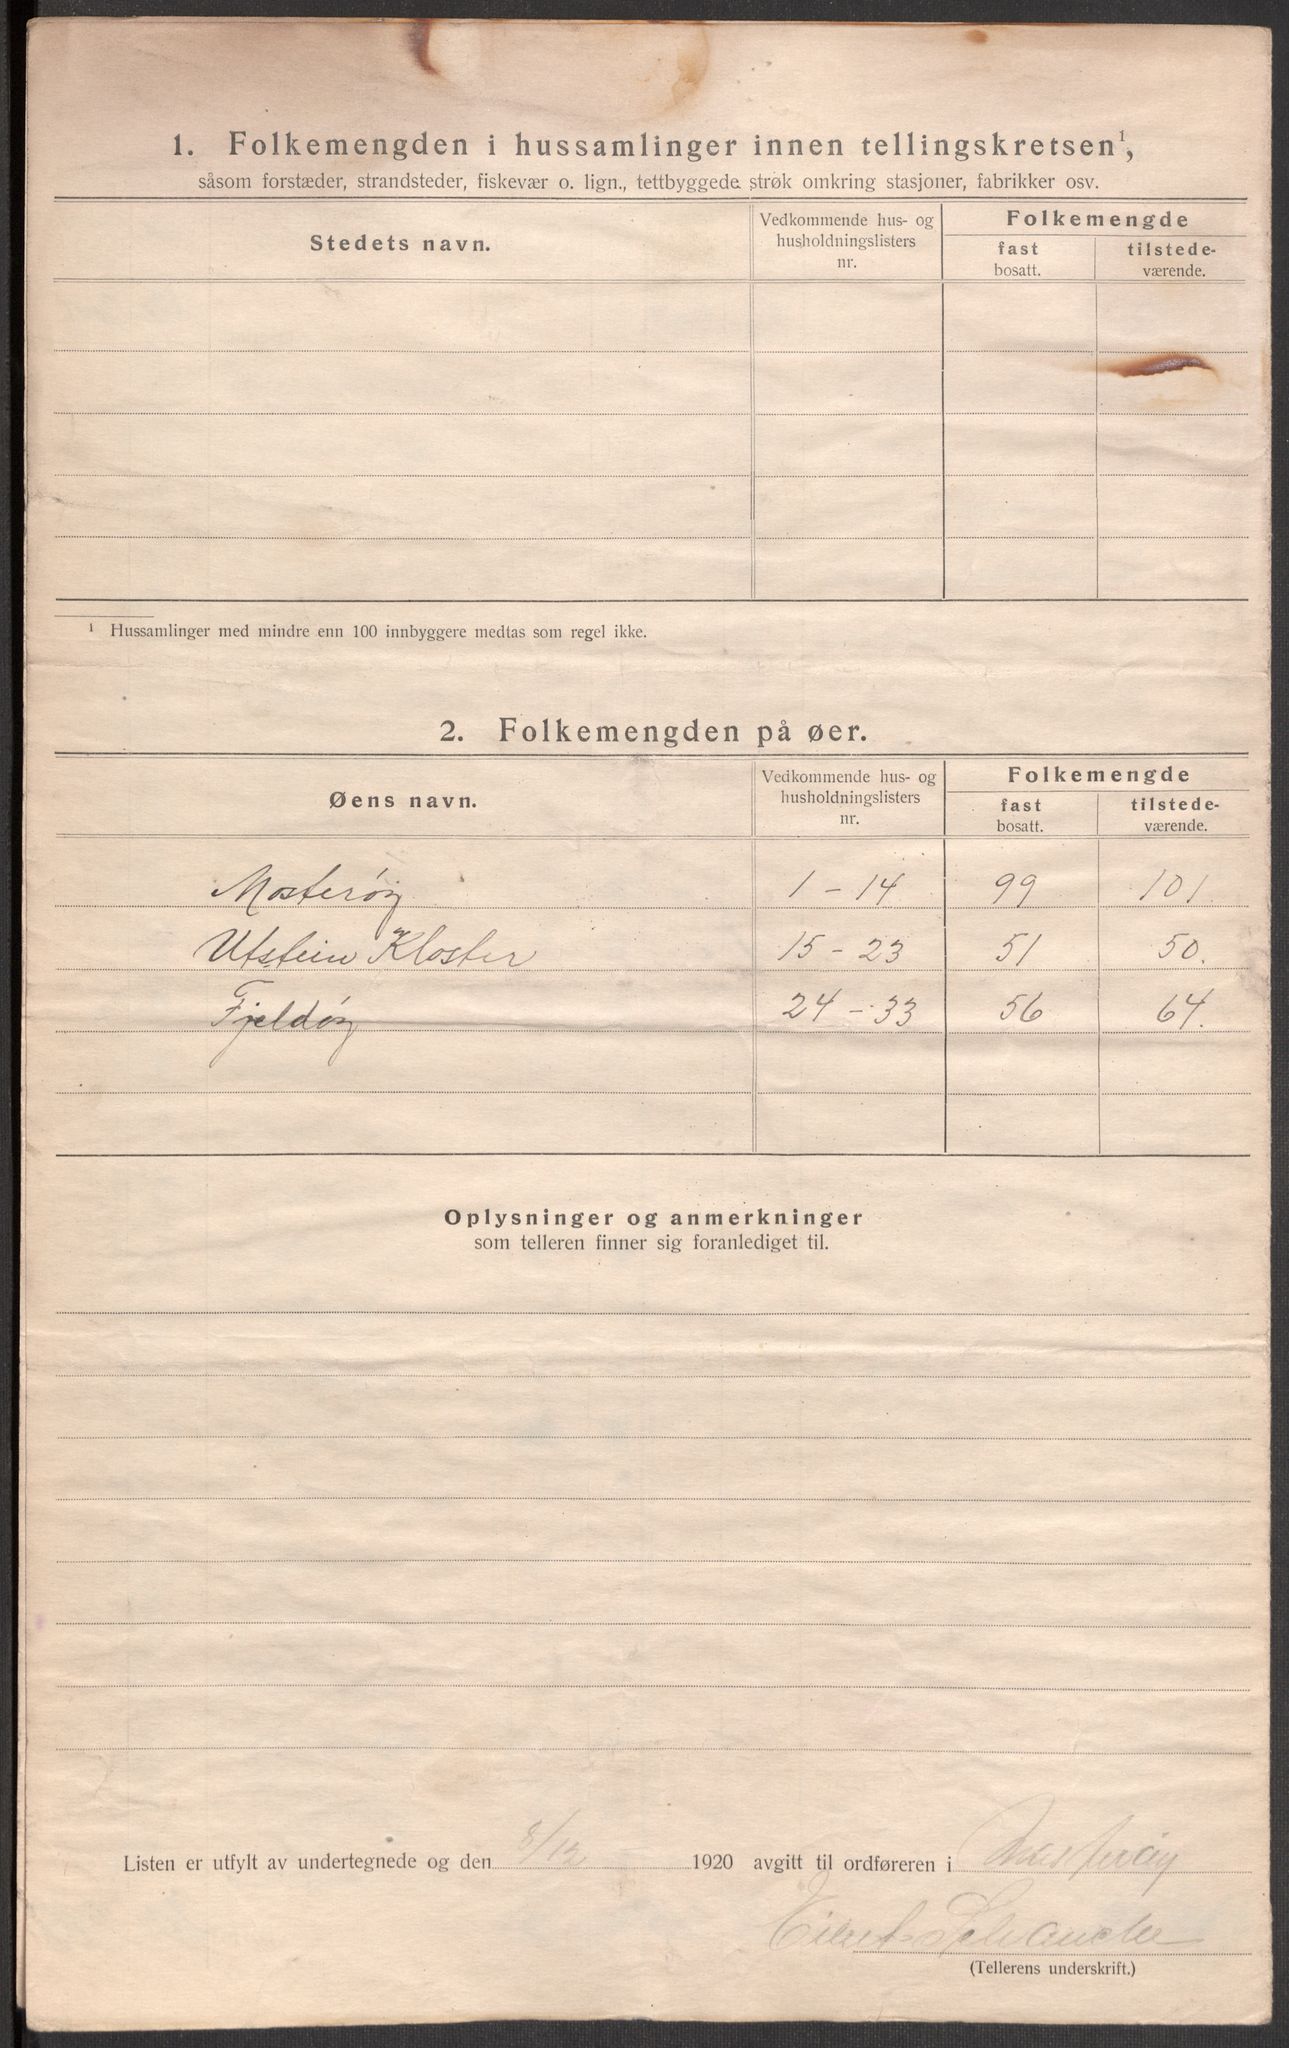 1. Folkemengden i hussamlinger innen tellingskretsen¹,
såsom forstæder, strandsteder, fiskevær o. lign., tettbyggede strøk omkring stasjoner, fabrikker osv.
Stedets navn.
Vedkommende hus- og
husholdningslisters
nr.
Folkemengde
fast
bosatt.
tilstede-
værende.
¹ Hussamlinger med mindre enn 100 innbyggere medtas som regel ikke.
2. Folkemengden på øer.
Øens navn.
Vedkommende hus- og
husholdningslisters
nr.
Folkemengde
fast
bosatt.
tilstede-
værende.
Mosterøy 1 - 14 99 101.
Utstein Kloster 15 - 23 51 50.
Fjeldøy 24 - 33 56 64.
Oplysninger og anmerkninger
som telleren finner sig foranlediget til.
Listen er utfylt av undertegnede og den 8/12 1920 avgitt til ordføreren i Mosterøy
Eilert Schanche
(Tellerens underskrift.)